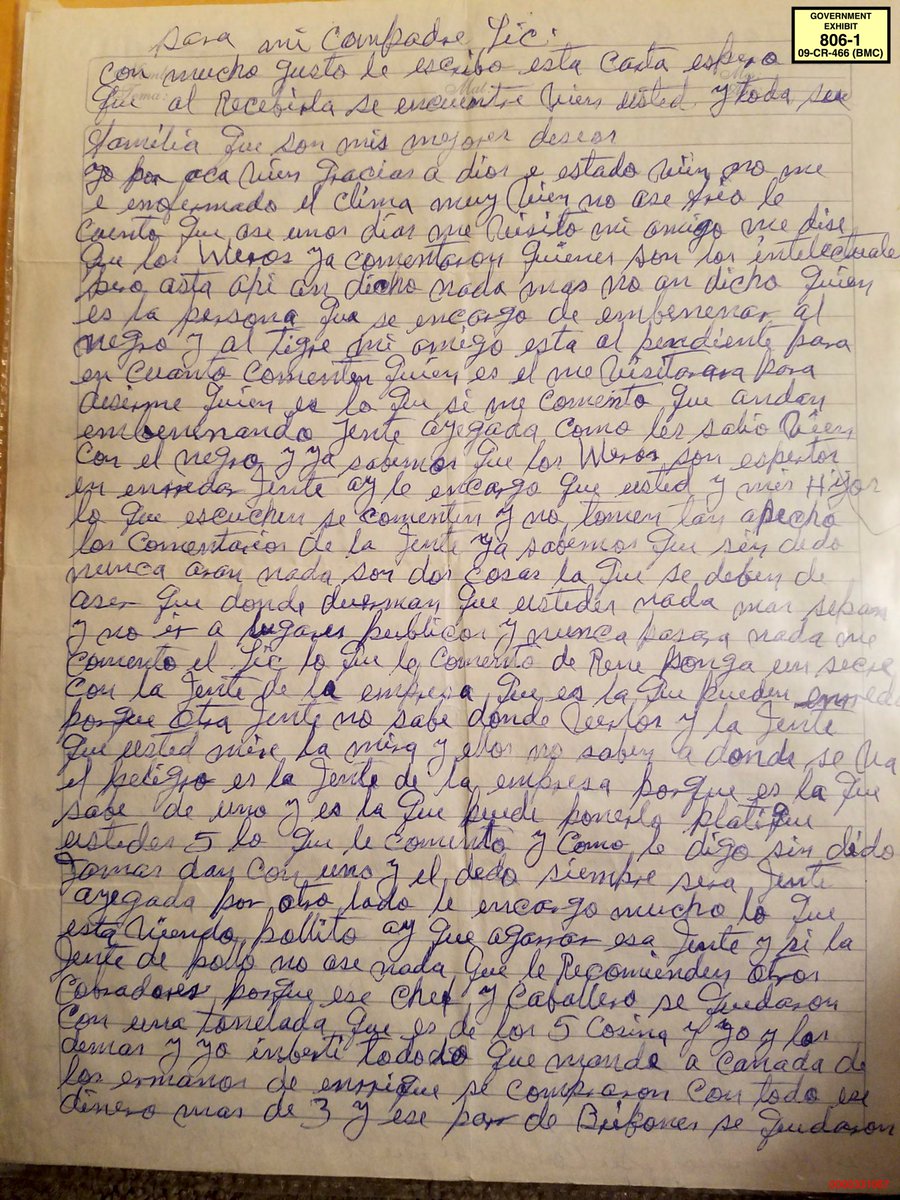 GOVERNMENT
EXHIBIT
806-1
09-CR-466 (BMC)
para mi Compadre Lic:
con mucho gusto le escribo esta carta espero
que al Recebirla se encuentre bien usted y toda su
familia que son mis mejores deseos
yo por aca bien gracias a dios e estado bien no me
e enfermado el clima muy bien no ase frio le
cuento que ase unos dias me visito mi amigo me dise
que los Weros ya comentaron quienes son los intelectuale
pero asta api an dicho nada mas no an dicho quien
es la persona que se encargo de embenenar al
negro y al tigre mi amigo esta al pendiente para
en cuanto comenten quien es el me visitara para
deserme quien es lo que si me comento que andan
embenenando jente ayegada como les salio bien
con el negro y ya sabemos que los Weros son espertos
en enredar jente ay le encargo que usted y mis Hijos
lo que escuchen se comenten y no tomen tan apecho
los comentarios de la jente ya sabemos que sin dedo
nunca aran nada son dos cosas la que se deben de
aser que donde duerman que ustedes nada mas sepan
y no ir a lugares publicos y nunca pasara nada me
comento el Lic lo que le comento de Rene ponga un secre
con la jente de la empresa que es la que pueden
porque otra jente no sabe donde verlos y la jente
que usted mire la mira y ellos no saben a donde se va
el peligro es la jente de la empresa porque es la que
sabe de uno y es la que puede ponerlo platique
ustedes 5 lo que le comento y como le digo sin dedo
jamas dan con uno y el dedo siempre sera jente
ayegada por otro lado le encargo mucho lo que
esta viendo pollito ay que agarrar esa jente y si la
jente de pollo no ase nada que le Recomienden otros
cobradores porque ese chef y Caballero se quedaron
con una tonelada que es de los 5 Cosina y yo y los
demas y yo inberti todo lo que mando a Canada de
los ermanos de enrrique se compraron con todo ese
dinero mas de 3 y ese par de Bribones se quedaron